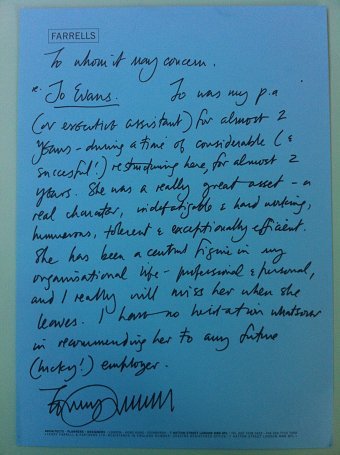 FARRELLS
To whom it may concern.
re. Jo Evans. Jo was my p.a
(or executive assistant) for almost 2
years - during a time of considerable (&
successful!) restructuring here, for almost 2
years. She was a really great asset - a
real character, indefatigable & hard working,
humorous, tolerant & exceptionally efficient.
She has been a central figure in my
organisational life - professional & personal,
and I really will miss her when she
leaves. I have no hesitation whatsoever
in recommending her to any future
(lucky!) employer.